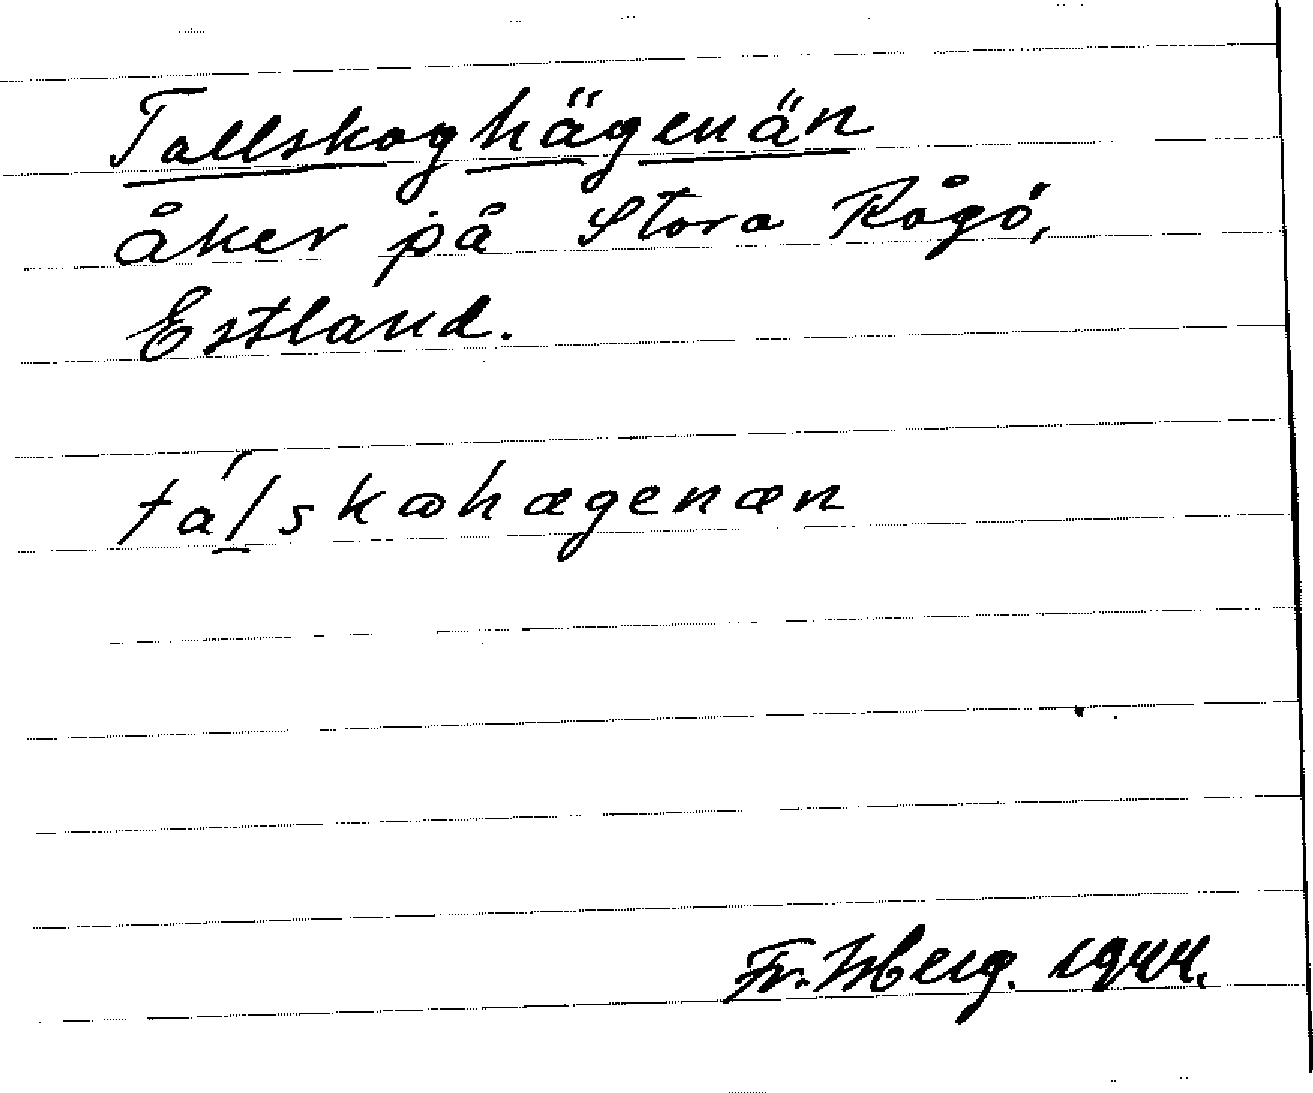 Tallskoghägenän
åker på Stora Rågö,
Estland.
tál̲skæhægenæn
Fr. Isberg. 1944.